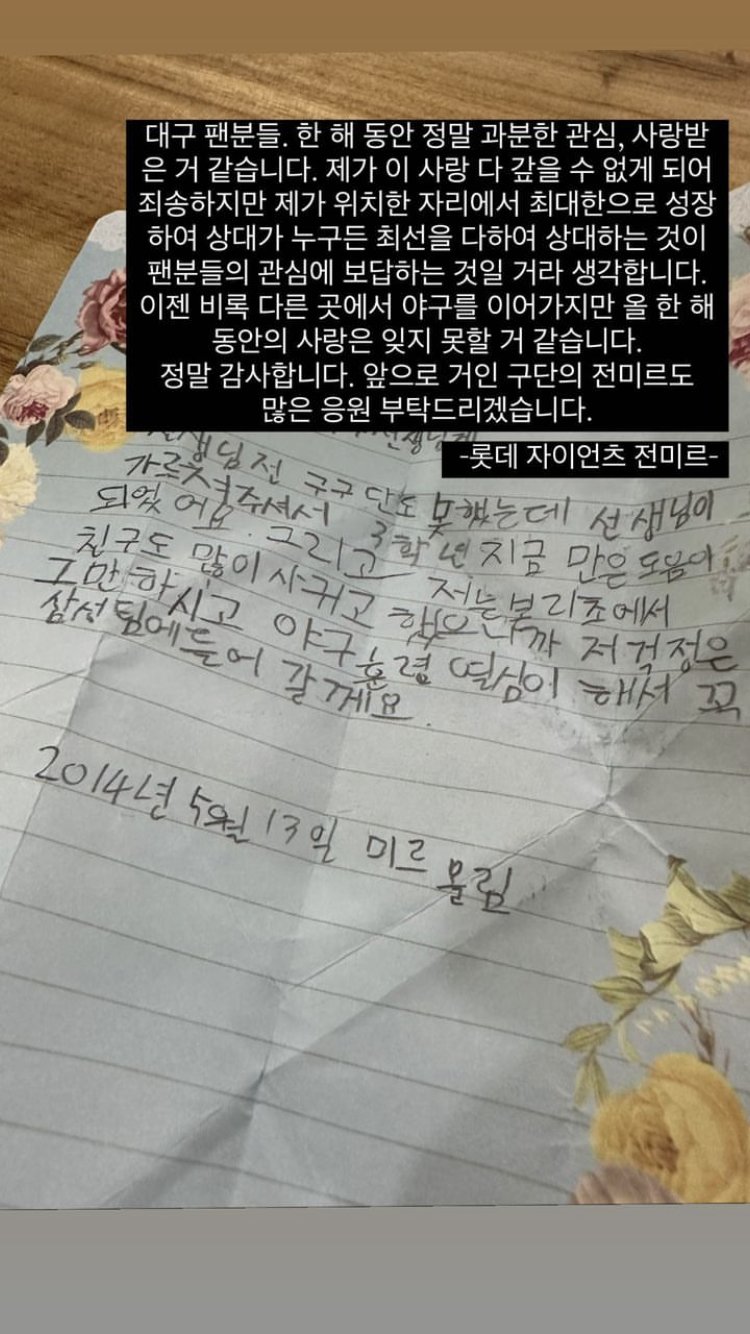 대구 팬분들. 한 해 동안 정말 과분한 관심, 사랑받
은 거 같습니다. 제가 이 사랑 다 갚을 수 없게 되어
죄송하지만 제가 위치한 자리에서 최대한으로 성장
하여 상대가 누구든 최선을 다하여 상대하는 것이
팬분들의 관심에 보답하는 것일 거라 생각합니다.
이젠 비록 다른 곳에서 야구를 이어가지만 올 한 해
동안의 사랑은 잊지 못할 거 같습니다.
정말 감사합니다. 앞으로 거인 구단의 전미르도
많은 응원 부탁드리겠습니다.
-롯데 자이언츠 전미르-
선생님께
선생님 전 구구단도 못했는데 선생님이
가르쳐주셔서 3학년 지금 만은 도움이
되었어요. 그리고 저는 본리초에서
친구도 많이 사귀고 했으니까 저 걱정은
그만하시고 야구 훈령 열심이 해서 꼭
삼성팀에 들어 갈께요.
2014년 5월 13일 미르 올림